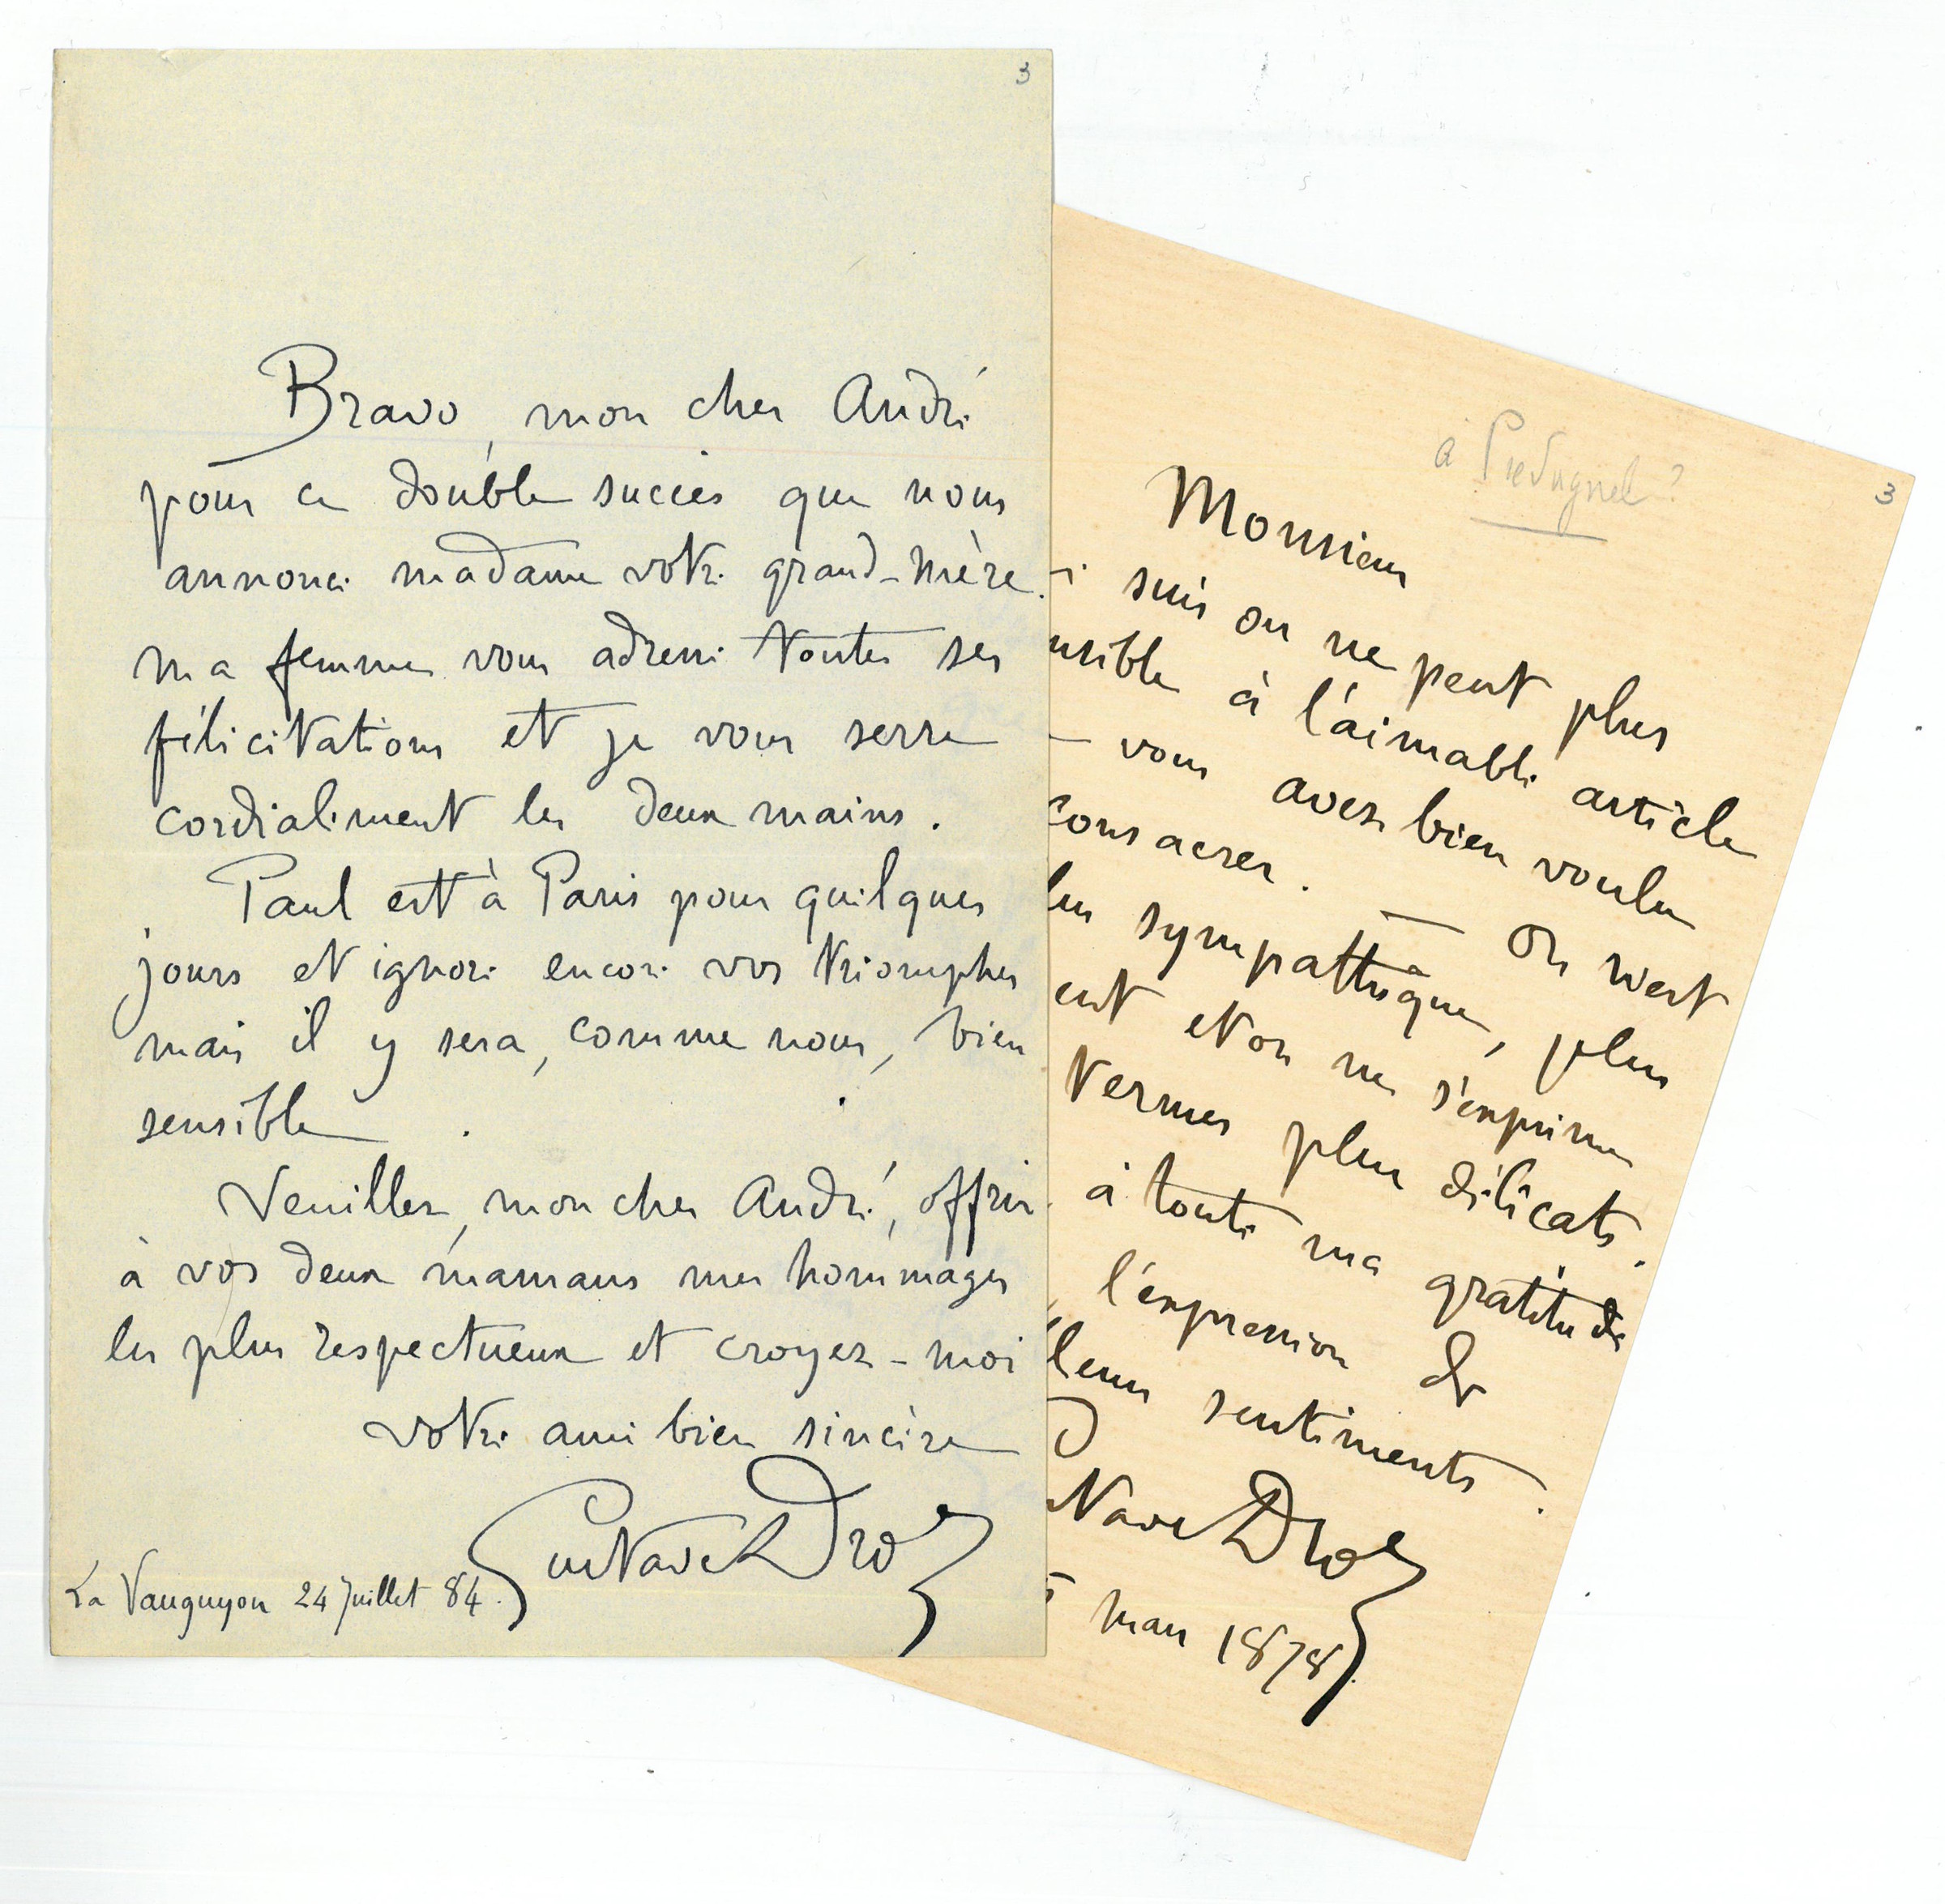 3
Bravo, mon cher André
pour ce double succès que nous
annonce madame votre grand-mère.
ma femme vous adresse toutes ses
félicitations et je vous serre
cordialement les deux mains.
Paul est à Paris pour quelques
jours et ignore encore vos triomphes
mais il y sera, comme nous, bien
sensible.
Veuillez, mon cher André, offrir
à vos deux mamans mes hommages
les plus respectueux et croyez-moi
votre ami bien sincère
Gustave Droz
La Vauguyon 24 Juillet 84.
à Piedagnel?
3
Monsieur
suis on ne peut plus
nsible à l'aimable article
vous avez bien voulu
consacrer. — On n'est
plus sympathique, plus
et on ne s'exprime
termes plus délicats.
à toute ma gratitude
l'expression de
sentiments.
tave Droz
mars 1878.